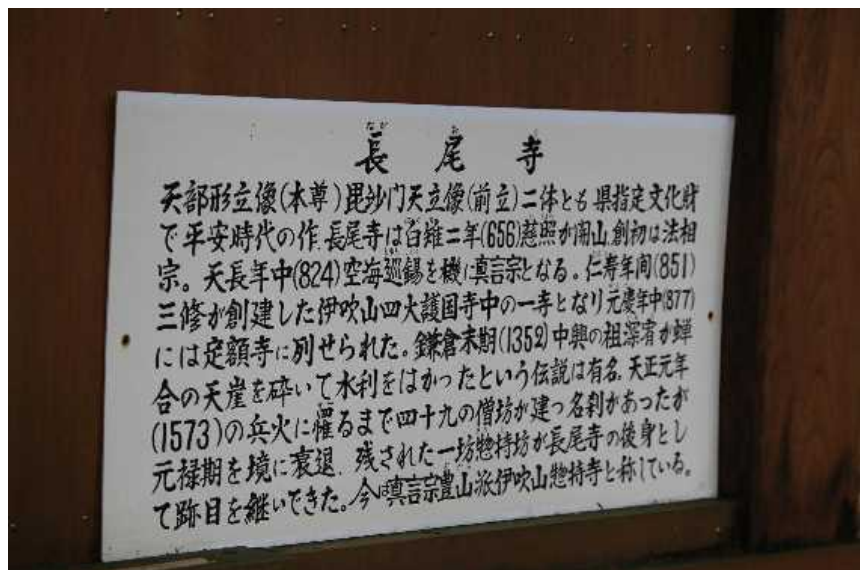 長尾寺
天部形立像(本尊)毘沙门天立像(前立)二体とも県指定文化財
で平安時代の作.長尾寺は白雉二年(656)慈照が開山.創初は法相
宗。天長年中(824)空海巡錫を機に真言宗となる。仁寿年间(851)
三修が創建した伊吹山四大護国寺中の一寺となり元慶年中(877)
には定額寺に列せられた。鎌倉末期(1352)中興の祖深宥が蝉
合の天崖を砕いて水利をはかったという伝説は有名.天正元年
(1573)の兵火に罹るまで四十九の僧坊が建つ名刹があったが
元禄期を境に衰退.残された一坊惣持坊が長尾寺の後身とし
て跡目を継いできた。今は真言宗豊山派伊吹山惣持寺と称している。